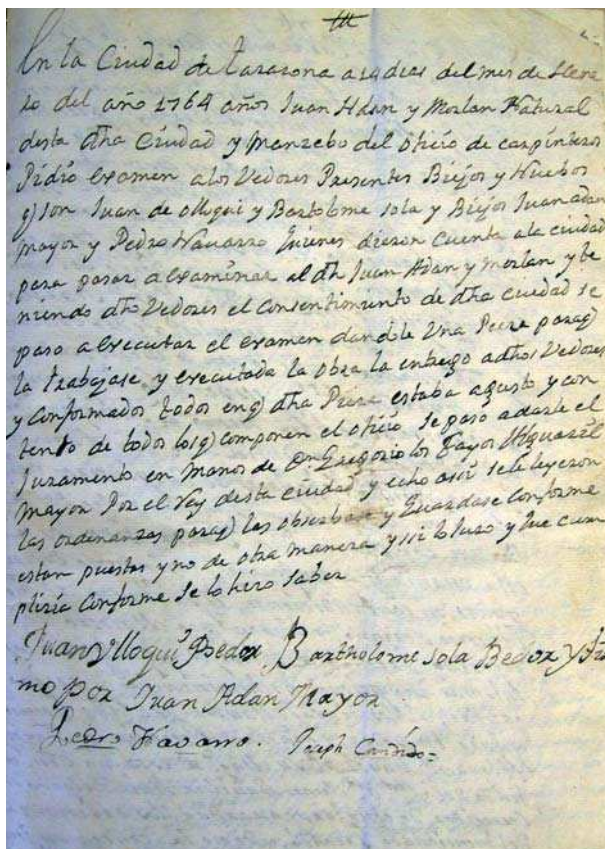 En la Ciudad de tarazona a 14 dias del mes de Hene
ro del año 1764 años Juan Adan y Morlan Natural
desta dha Ciudad y manzebo del oficio de carpinteros
Pidio examen alos Vedores Presentes Biejos y Nuebos
q) son Juan de olloqui y Bartolome sola y Biejos Juan adan
mayor y Pedro Navarro quienes dieron cuenta ala ciudad
para pasar a examinar al dho Juan Adan y morlan y te
niendo dhos Vedores el consentimiento de dha ciudad se
paso a executar el examen dandole Una Pieza paraq)
la trabajase y executada la obra la entrego adhos Vedores
y conformados todos enq) dha Pieza estaba agusto y con
tento de todos losq) componen el oficio se paso adarle el
Juramento en manos de Dn Gregorio los fayos Alguazil
mayor Por el Rey desta ciudad y echo asi se le leyeron
las ordenanzas paraq) las obserbase y Guardase conforme
estan puestas y no de otra manera y si lo juro y que cum
pliria conforme se lo hizo saber
Juan olloqui Bedor Bartholome sola Bedor y fir
mo por Juan Adan Mayor
Pedro Navarro. Joseph Candido